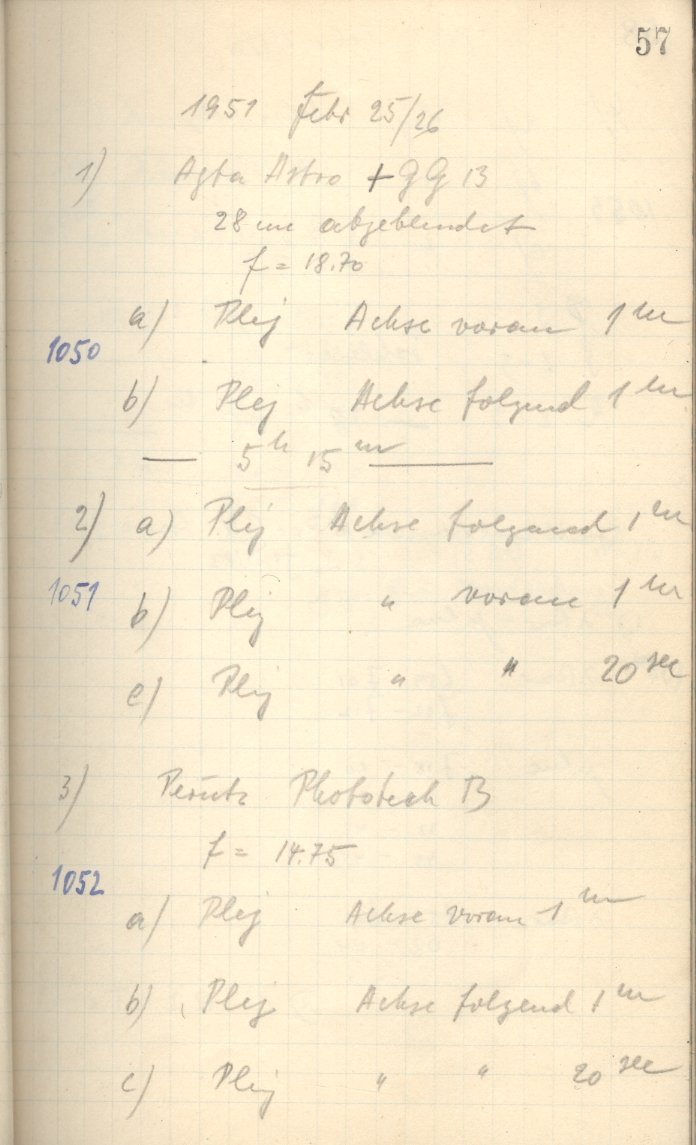 57
1951 Febr 25/26
1) Agfa Astro + GG 13
28 cm abgeblendet
f = 18.70
a) Plej Achse voran 1 m
1050
b) Plej Achse folgend 1 m
— 5 h 15 m —
2) a) Plej Achse folgend 1 m
1051
b) Plej " voran 1 m
c) Plej " " 20 sec
3) Perutz Phototech B
f = 14.75
1052
a) Plej Achse voran 1 m
b) Plej Achse folgend 1 m
c) Plej " " 20 sec